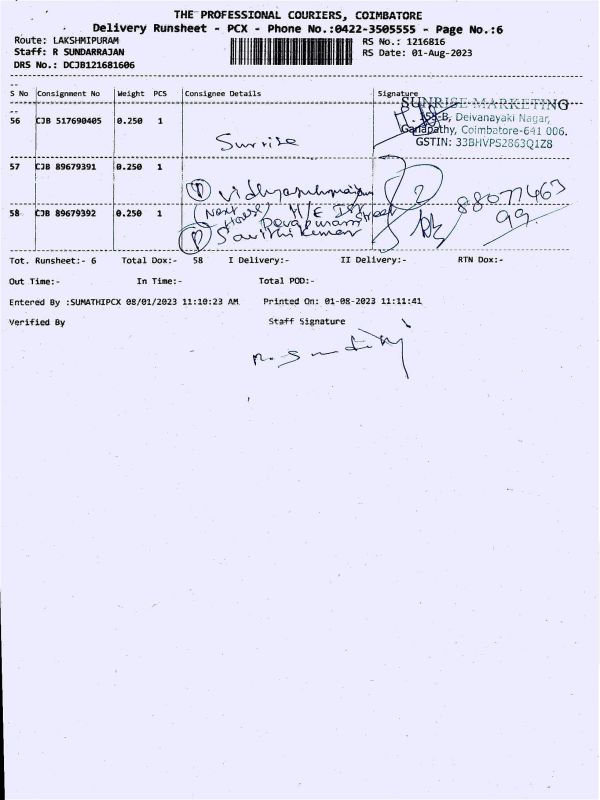 THE PROFESSIONAL COURIERS, COIMBATORE
Delivery Runsheet - PCX - Phone No.:0422-3505555 - Page No.:6
Route: LAKSHMIPURAM RS No.: 1216816
Staff: R SUNDARRAJAN RS Date: 01-Aug-2023
DRS No.: DCJB121681606
S No Consignment No Weight PCS Consignee Details Signature
SUNRISE MARKETING
155-B, Deivanayaki Nagar,
Ganapathy, Coimbatore-641 006.
GSTIN: 33BHVPS2863Q1Z8
56 CJB 517690405 0.250 1 Sunrise
57 CJB 89679391 0.250 1
(Next House)
58 CJB 89679392 0.250 1 Street 88077463
99
Tot. Runsheet:- 6 Total Dox:- 58 I Delivery:- II Delivery:- RTN Dox:-
Out Time:- In Time:- Total POD:-
Entered By :SUMATHIPCX 08/01/2023 11:10:23 AM Printed On: 01-08-2023 11:11:41
Verified By Staff Signature